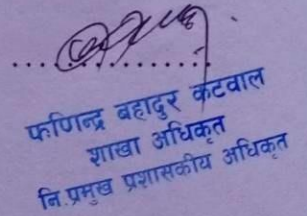 फणिन्द्र बहादुर कटवाल
शाखा अधिकृत
नि.प्रमुख प्रशासकीय अधिकृत